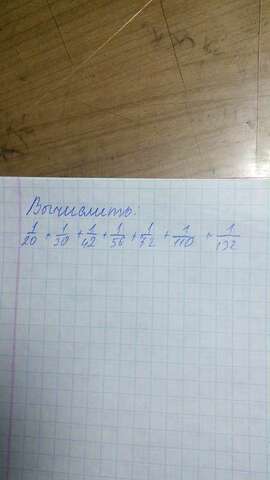 Вычислить:
1/20 + 1/30 + 1/42 + 1/56 + 1/72 + 1/110 + 1/132